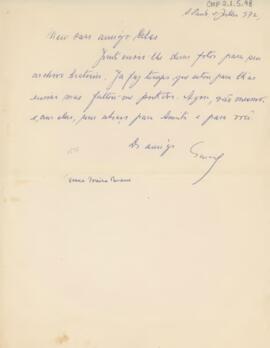 CMP 2.1.5.98
S. Paulo, 2, Julho 972,
Meu caro amigo
Junto envio lhe duas fotos para seu
archivo historico. Ja faz tempo que estou para lhas
enviar mas faltou-me portador. Agora, vão mesmo
e, com elas, um abraço para e para você.
Do amigo